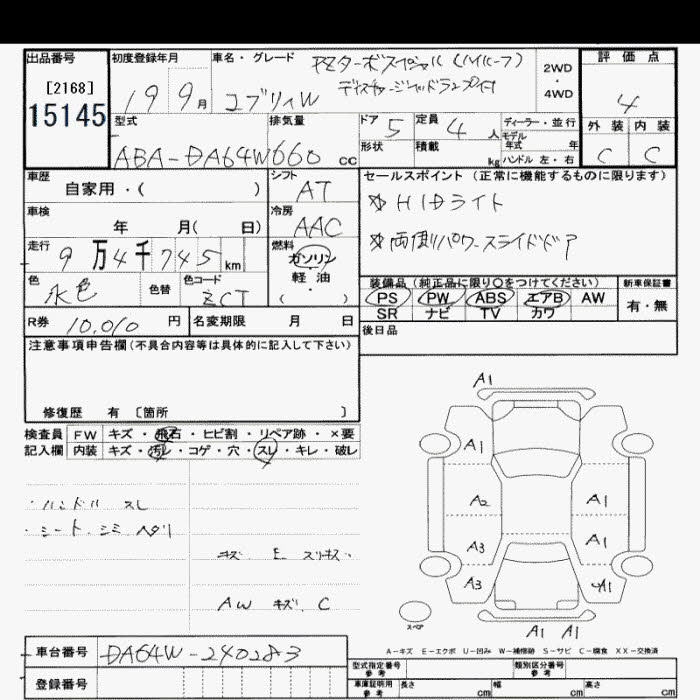 出品番号 初度登録年月 車名・グレード PZターボスペシャル (ハイルーフ) 2WD・4WD 評価点
[2168] 15145 19 9月 エブリィW ディスチャージヘッドランプ付 4
型式 排気量 ドア 5 定員 4人 ディーラー・並行 外装 内装
ABA-DA64W 660 cc 形状 積載 kg モデル年式 年式 ハンドル 左・右 C C
車歴 自家用・( ) シフト AT セールスポイント (正常に機能するものに限ります)
車検 年 月( 日) 冷房 AAC ※HIDライト
走行 9万4千745km 燃料 ガソリン 軽油 ・( ) ※両側パワースライドドア
色 水色 色替 色コード ZCT 装備品 (純正品に限り○をつけてください) 新車保証書
PS PW ABS エアB AW 有・無
SR ナビ TV カワ
R券 10,010 円 名変期限 月 日 後日品
注意事項申告欄 (不具合内容等は具体的に記入して下さい)
修復歴 有 〔箇所 〕
検査員 FW キズ・飛石・ヒビ割・リペア跡・×要
記入欄 内装 キズ・汚レ・コゲ・穴・スレ・キレ・破レ
・ハンドル スレ
・シート、シミ ヘタリ
キズ E スリキズ
AW キズ C
A1
A1
A2 A1
A3 A1
A3 A1
スペア A1 A1
A-キズ E-エクボ U-凹み W-補修跡 S-サビ C-腐食 XX-交換済
車台番号 DA64W-240283
登録番号
型式指定番号 参考 類別区分番号 参考
車庫証明用 参考 長さ cm 幅 cm 高さ cm